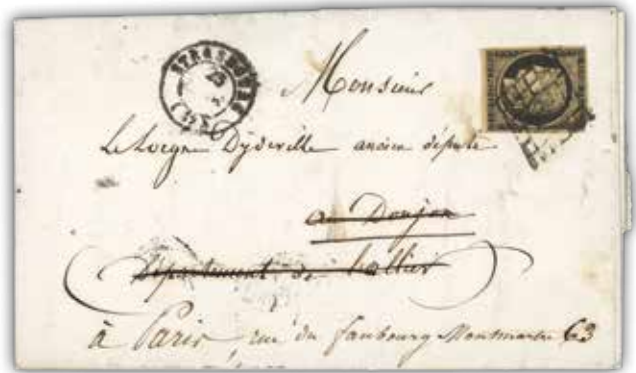 STRASBOURG
(67)
Monsieur
ancien député
au Donjon
Département de l'allier
à Paris, rue du faubourg Montmartre 63